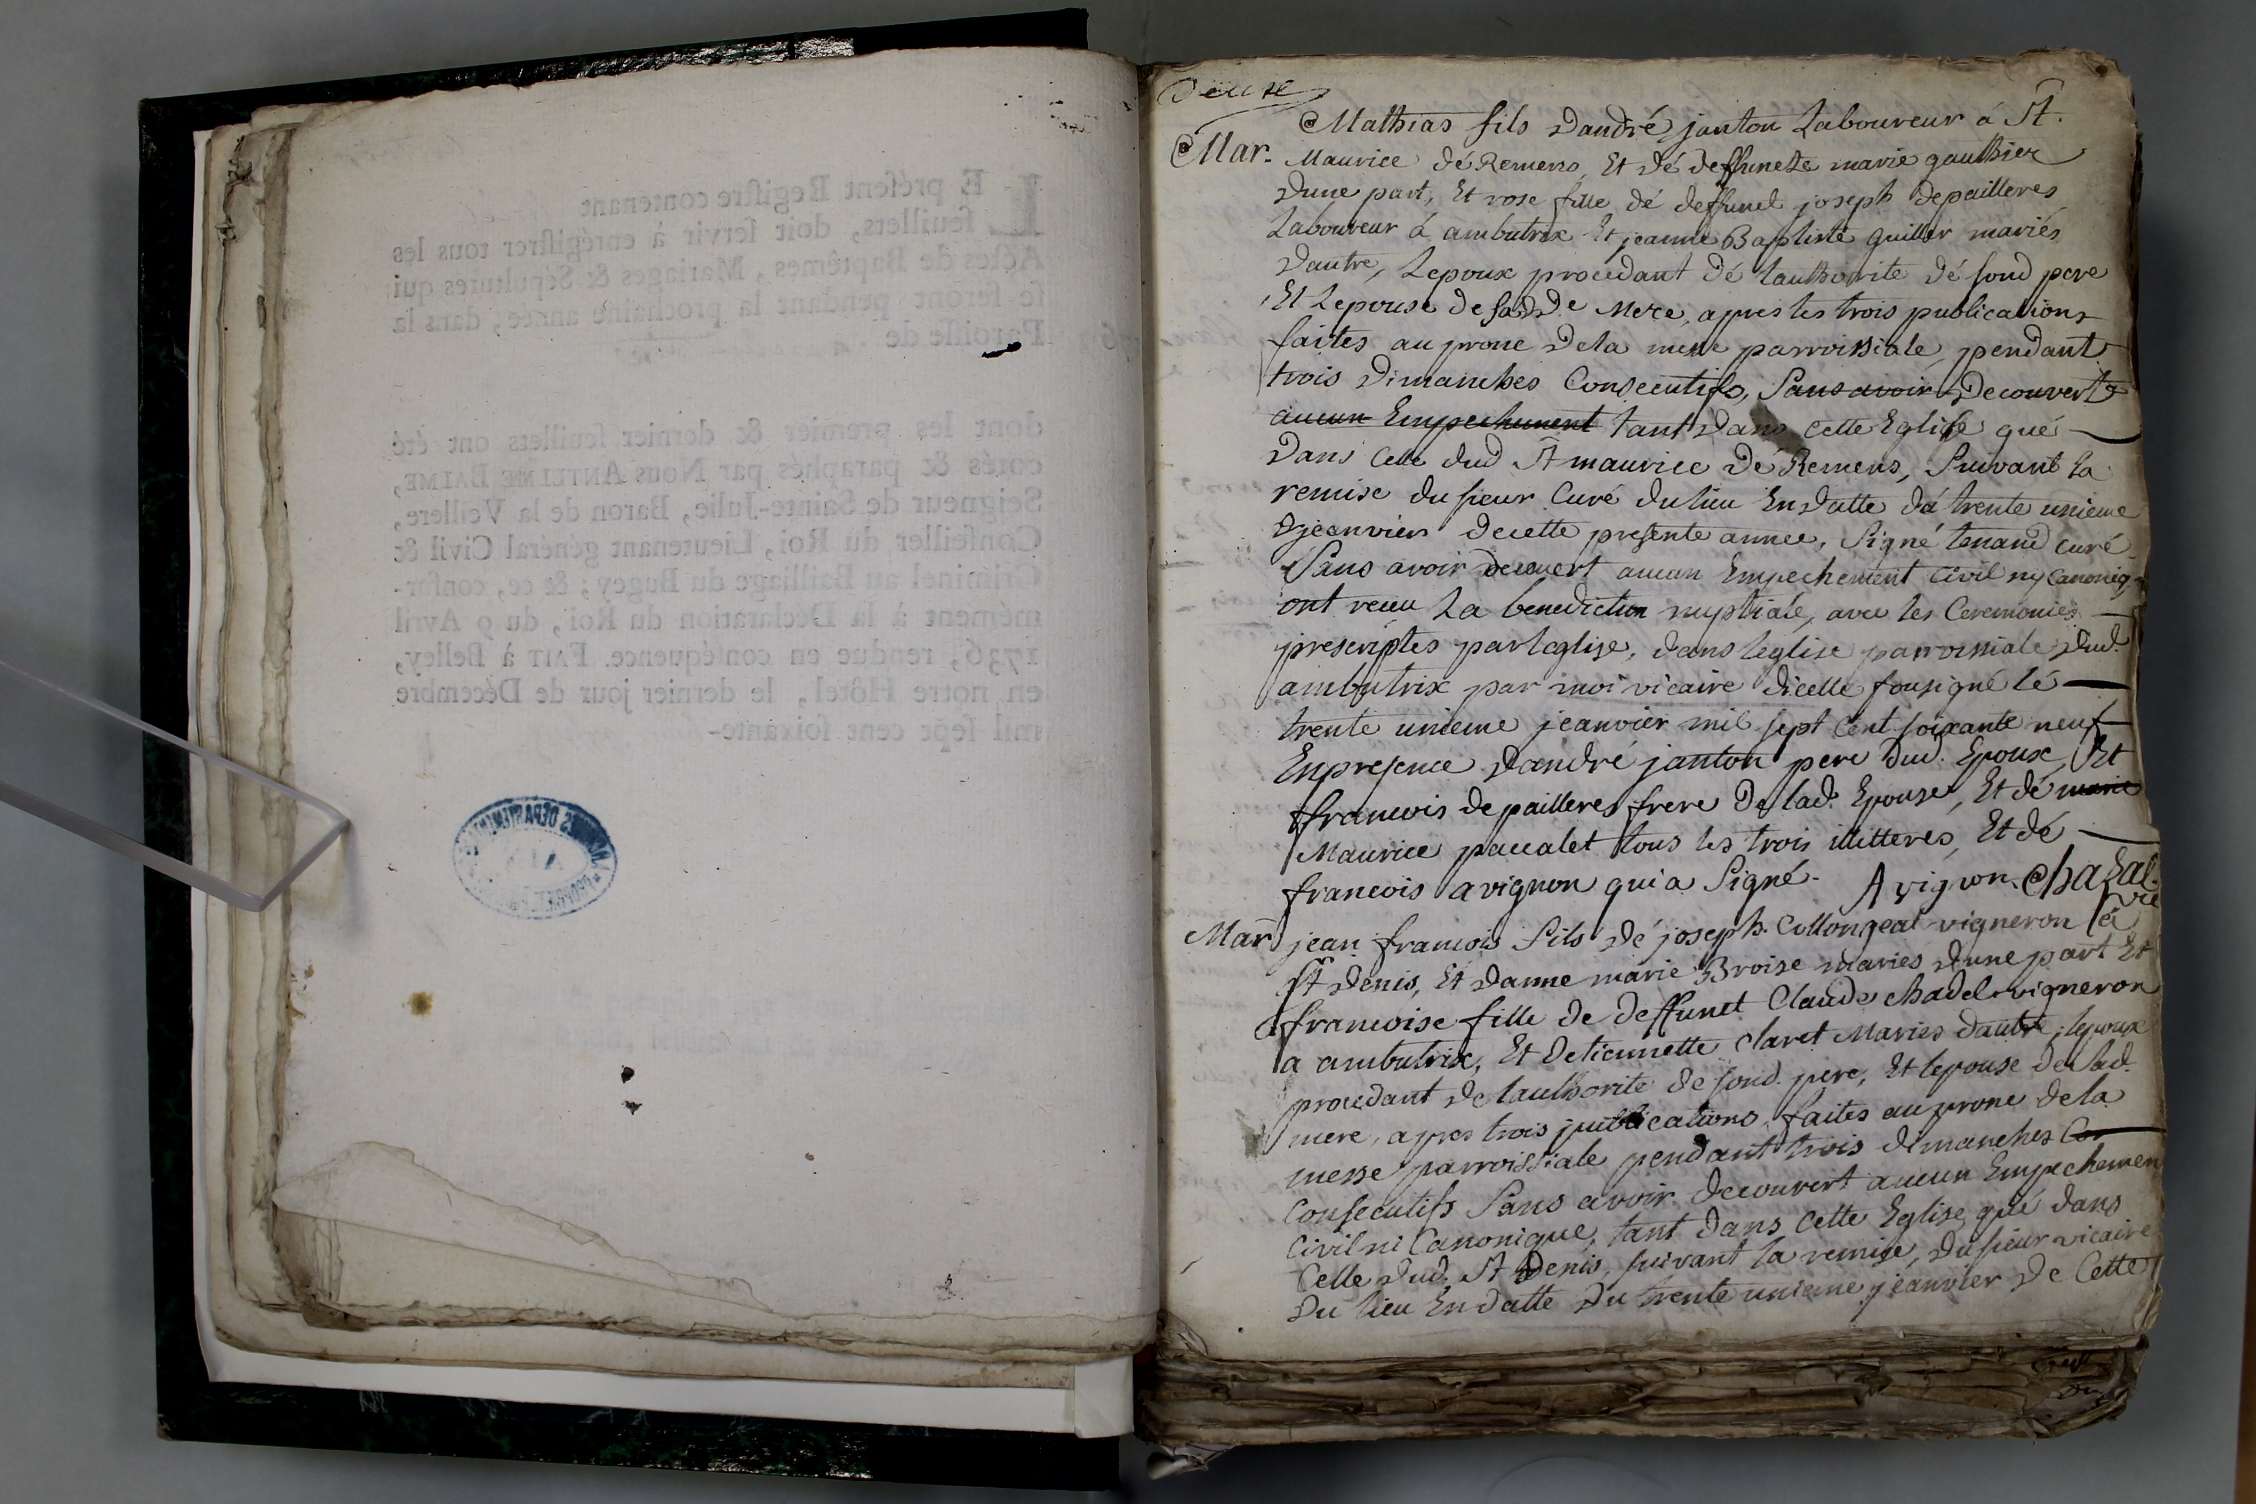 LE présent Registre contenant
feuillets, doit servir à enrégistrer tous les
Actes de Baptêmes, Mariages & Sépultures qui
se feront pendant la prochaine année, dans la
Paroisse de
dont les premier & dernier feuillets ont été
cotés & paraphés par Nous ANTELME BALME,
Seigneur de Sainte-Julie, Baron de la Veillere,
Conseiller du Roi, Lieutenant général Civil &
Criminel au Bailliage du Bugey ; & ce, confor-
mément à la Déclaration du Roi, du 9 Avril
1736, rendue en conséquence. FAIT à Belley,
en notre Hôtel, le dernier jour de Décembre
mil sept cent soixante-
Mathias fils dandré janton Laboureur á St.
Mar. Maurice dé Remens, Et dé deffuncte marie gauthier
dune part, Et rose fille dé deffunct joseph depailleres
Laboureur á ambutrix Et jeanne Baptiste guiller mariés
dautre, Lepoux procedant dé lauthorite dé sond pere
Et Lepouse de sadde Mere, apres les trois publications
faites au prone dela messe parroissiale pendant
trois dimanches Consecutifs, Sans avoir Decouvert
aucun Empechement tant dans cette Eglise qué
dans celle dud St maurice Dé Remens, Suivant la
remise du sieur Curé du lieu En datte dú trente unieme
jeanvier decette presente année, Signé tenand curé
Sans avoir decouvert aucun Empechement civil ny Canoniq
ont receu La benediction nuptiale, avec les Ceremonies
prescriptes par leglise, dans leglise parroissiale dud.
ambutrix par moi vicaire dicelle sousigné lé
trente unieme jeanvier mil sept cent soixante neuf
En presence dandré janton pere dud. Epoux, Et
francois depailleres frere De lad. Epouse, Et dé marie
Maurice paccalet tous les trois illitterés, Et dé
francois avignon qui a Signé. Avignon. Chazal.
vic
Mar jean francois fils dé joseph Collongeat vigneron á
St Denis, Et danne marie Broise mariés dune part Et
francoise fille de deffunct Claude chadel vigneron
a ambutrix, Et detiennette claret Mariés dautre, lepoux
procedant de lauthorite de sond. pere, Et lepouse de Sad.
mere, apres trois publications faites au prone dela
messe parroissiale pendant trois dimanches Con
Consecutifs Sans avoir decouvert aucun Empechemen
Civil ni Canonique, tant dans cette Eglise qué dans
Celle dud. St Denis, suivant la remise, du sieur vicaire
Du lieu En datte du trente unieme jeanvier de Cette